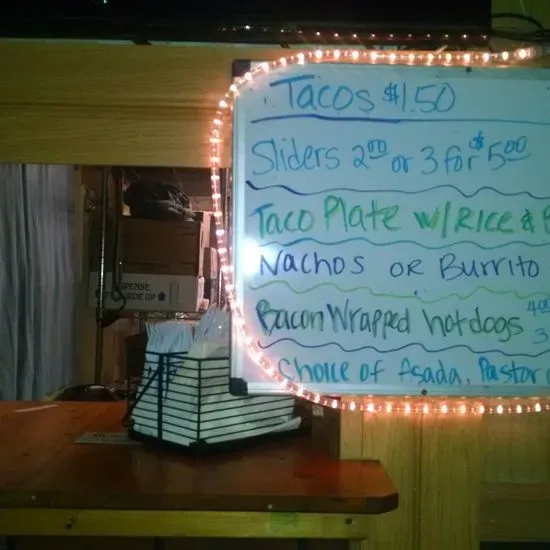 Tacos $1.50
Sliders 2.00 or 3 for $5.00
Taco Plate w/Rice &
Nachos or Burrito
Bacon Wrapped hotdogs
Choice of Asada, Pastor
SPENSE
SIDE UP